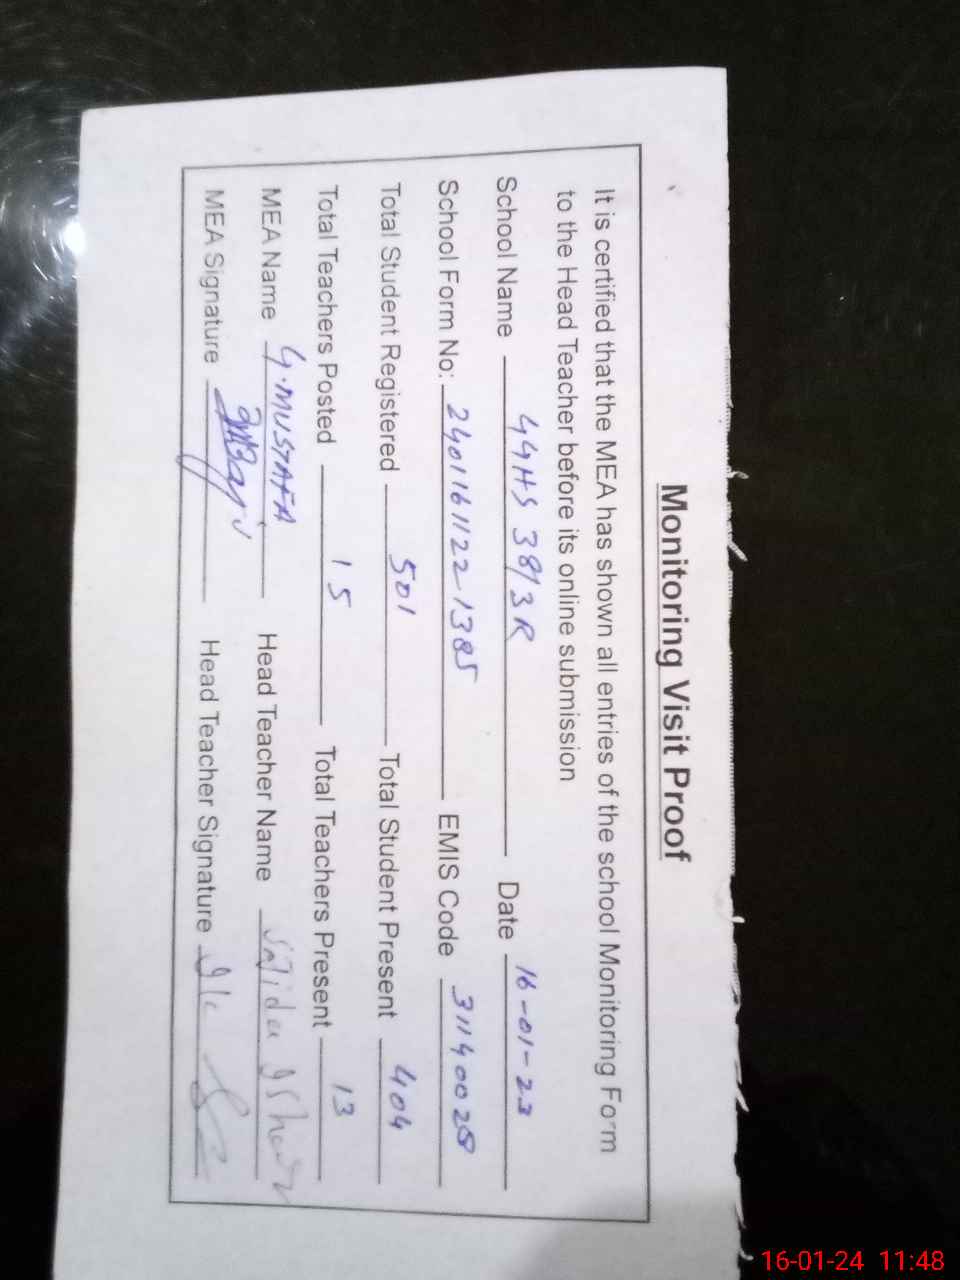 Monitoring Visit Proof
It is certified that the MEA has shown all entries of the school Monitoring Form
to the Head Teacher before its online submission
School Name GGHS 38/3R Date 16-01-23
School Form No: 2401161122-1385 EMIS Code 31140028
Total Student Registered 501 Total Student Present 404
Total Teachers Posted 15 Total Teachers Present 13
MEA Name G.MUSTAFA Head Teacher Name Sajida
MEA Signature Head Teacher Signature
16-01-24 11:48